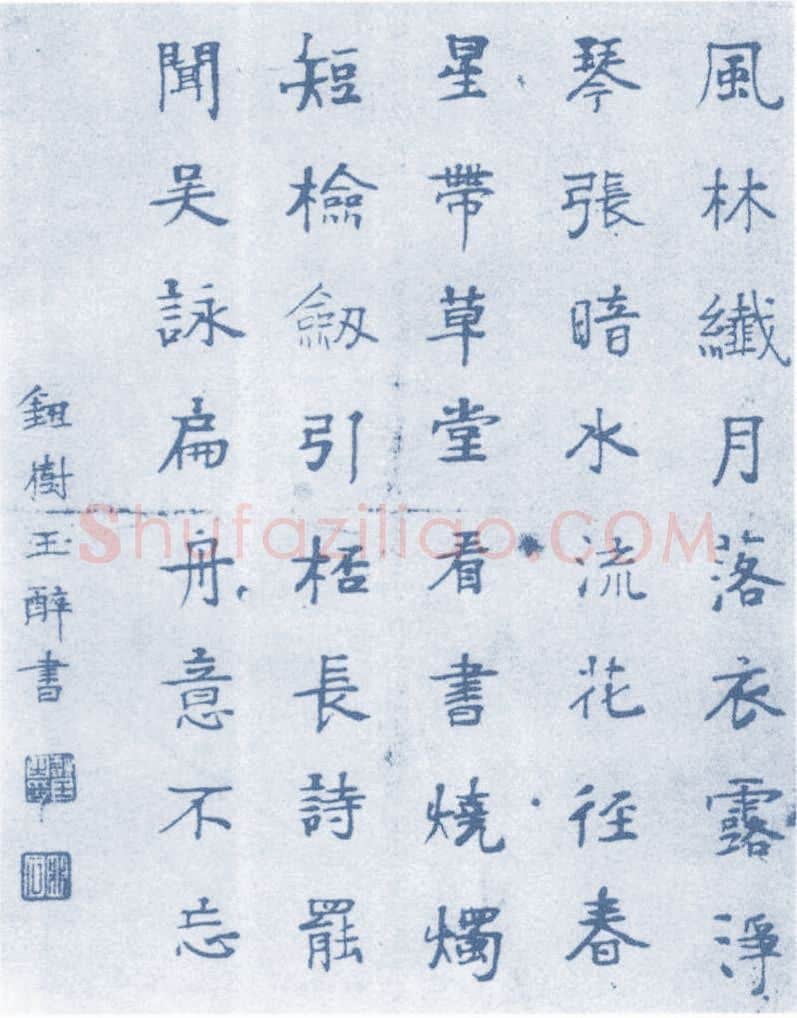 風林纖月落衣露淨
琴張暗水流花徑春
星帶草堂看書燒燭
短檢劒引桮長詩罷
聞吴詠扁舟意不忘
鈕樹玉醉書
Shufaziliao.COM